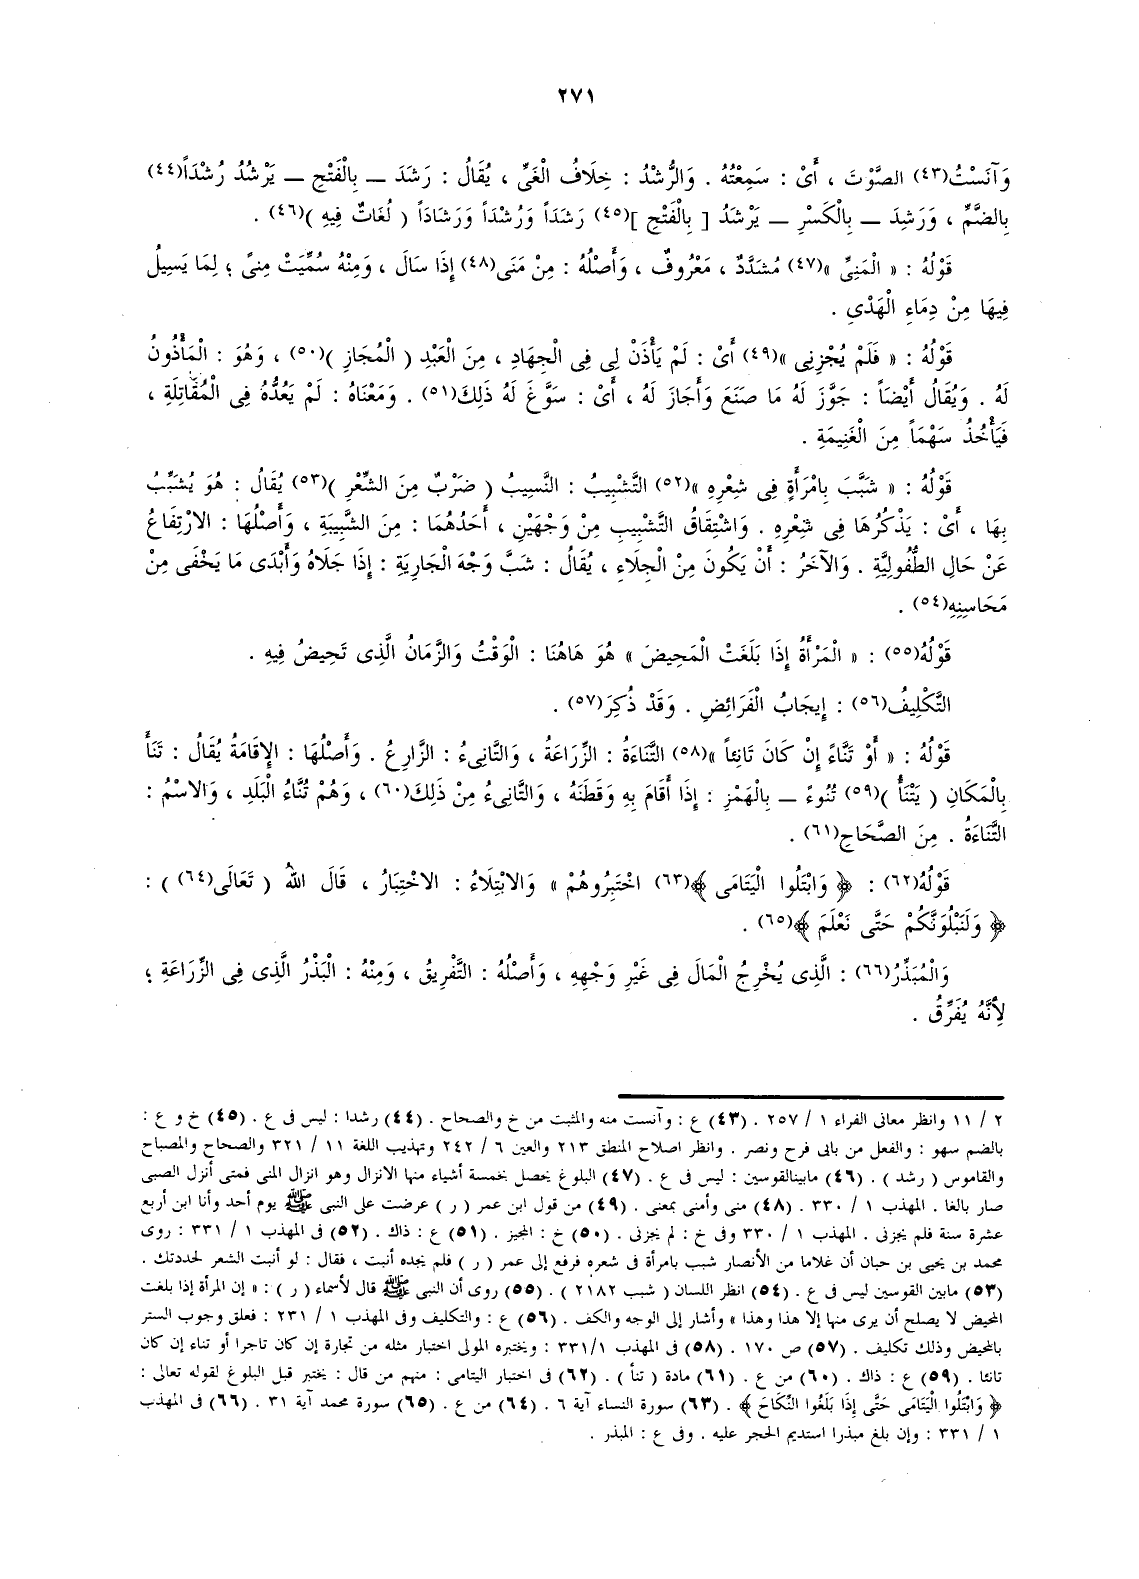 ٢٧١
وَآنَسْتُ(٤٣) الصَّوْتَ ، أَىْ : سَمِعْتُهُ . وَالرُّشْدُ : خِلَافُ الْغَىِّ ، يُقَالُ : رَشَدَ ــ بِالْفَتْحِ ــ يَرْشُدُ رُشْدَاً(٤٤)
بِالضَّمِّ ، وَرَشِدَ ــ بِالْكَسْرِ ــ يَرْشَدُ [ بِالْفَتْحِ ](٤٥) رَشَدَاً وَرُشْدَاً وَرَشَادَاً ( لُغَاتٌ فِيهِ )(٤٦) .
قَوْلُهُ : « الْمَنِىِّ »(٤٧) مُشَدَّدٌ ، مَعْرُوفٌ ، وَأَصْلُهُ : مِنْ مَنَى(٤٨) إِذَا سَالَ ، وَمِنْهُ سُمِّيَتْ مِنىً ؛ لِمَا يَسِيلُ
فِيهَا مِنْ دِمَاءِ الْهَدْىِ .
قَوْلُهُ : « فَلَمْ يُجْزِنِى »(٤٩) أَىْ : لَمْ يَأْذَنْ لِى فِى الْجِهَادِ ، مِنَ الْعَبْدِ ( الْمُجَازِ )(٥٠) ، وَهُوَ : الْمَأْذُونُ
لَهُ . وَيُقَالُ أَيْضَاً : جَوَّزَ لَهُ مَا صَنَعَ وَأَجَازَ لَهُ ، أَىْ : سَوَّغَ لَهُ ذَلِكَ(٥١) . وَمَعْنَاهُ : لَمْ يَعُدَّهُ فِى الْمُقَاتِلَةِ ،
فَيَأْخُذُ سَهْمَاً مِنَ الْغَنِيمَةِ .
قَوْلُهُ : « شَبَّبَ بِامْرَأَةٍ فِى شِعْرِهِ »(٥٢) التَّشْبِيبُ : النَّسِيبُ ( ضَرْبٌ مِنَ الشِّعْرِ )(٥٣) يُقَالُ : هُوَ يُشَبِّبُ
بِهَا ، أَىْ : يَذْكُرُهَا فِى شِعْرِهِ . وَاشْتِقَاقُ التَّشْبِيبِ مِنْ وَجْهَيْنِ ، أَحَدُهُمَا : مِنَ الشَّبِيبَةِ ، وَأَصْلُهَا : الارْتِفَاعُ
عَنْ حَالِ الطُّفُولِيَّةِ . وَالآخَرُ : أَنْ يَكُونَ مِنْ الْجِلَاءِ ، يُقَالُ : شَبَّ وَجْهَ الْجَارِيَةِ : إِذَا جَلَاهُ وَأَبْدَى مَا يَخْفَى مِنْ
مَحَاسِنِهِ(٥٤) .
قَوْلُهُ(٥٥) : « الْمَرْأَةُ إِذَا بَلَغَتْ الْمَحِيضَ » هُوَ هَاهُنَا : الْوَقْتُ وَالزَّمَانُ الَّذِى تَحِيضُ فِيهِ .
التَّكْلِيفُ(٥٦) : إِيجَابُ الْفَرَائِضِ . وَقَدْ ذُكِرَ(٥٧) .
قَوْلُهُ : « أَوْ تَنَّاءً إِنْ كَانَ تَانِئاً »(٥٨) التَّنَاءَةُ : الزِّرَاعَةُ ، وَالتَّانِىءُ : الزَّارِعُ . وَأَصْلُهَا : الإِقَامَةُ يُقَالُ : تَنَأَ
بِالْمَكَانِ ( يَتْنَأُ )(٥٩) تُنُوءً ــ بِالْهَمْزِ : إِذَا أَقَامَ بِهِ وَقَطَنَهُ ، وَالتَّانِىءُ مِنْ ذَلِكَ(٦٠) ، وَهُمْ تُنَّاءُ الْبَلَدِ ، وَالاسْمُ :
التَّنَاءَةُ . مِنَ الصَّحَاحِ(٦١) .
قَوْلُهُ(٦٢) : ﴿ وَابْتَلُوا الْيَتَامَى ﴾(٦٣) اخْتَبِرُوهُمْ » وَالابْتِلَاءُ : الاخْتِبَارُ ، قَالَ اللهُ ( تَعَالَى(٦٤) ) :
﴿ وَلَنَبْلُوَنَّكُمْ حَتَّى نَعْلَمَ ﴾(٦٥) .
وَالْمُبَذِّرُ(٦٦) : الَّذِى يُخْرِجُ الْمَالَ فِى غَيْرِ وَجْهِهِ ، وَأَصْلُهُ : التَّفْرِيقُ ، وَمِنْهُ : الْبَذْرُ الَّذِى فِى الزِّرَاعَةِ ؛
لِأَنَّهُ يُفَرِّقُ .
٢ / ١١ وانظر معانى الفراء ١ / ٢٥٧ . (٤٣) ع : وآنست منه والمثبت من خ والصحاح . (٤٤) رشدا : ليس فى ع . (٤٥) خ و ع :
بالضم سهو : والفعل من بابى فرح ونصر . وانظر اصلاح المنطق ٢١٣ والعين ٦ / ٢٤٢ وتهذيب اللغة ١١ / ٣٢١ والصحاح والمصباح
والقاموس ( رشد ) . (٤٦) مابينالقوسين : ليس فى ع . (٤٧) البلوغ يحصل بخمسة أشياء منها الانزال وهو انزال المنى فمتى أنزل الصبى
صار بالغا . المهذب ١ / ٣٣٠ . (٤٨) منى وأمنى بمعنى . (٤٩) من قول ابن عمر ( ر ) عرضت على النبى ﷺ يوم أحد وأنا ابن أربع
عشرة سنة فلم يجزنى . المهذب ١ / ٣٣٠ وفى خ : لم يجزنى . (٥٠) خ : المجيز . (٥١) ع : ذاك . (٥٢) فى المهذب ١ / ٣٣١ : روى
محمد بن يحيى بن حبان أن غلاما من الأنصار شبب بامرأة فى شعره فرفع إلى عمر ( ر ) فلم يجده أنبت ، فقال : لو أنبت الشعر لحددتك .
(٥٣) مابين القوسين ليس فى ع . (٥٤) انظر اللسان ( شبب ٢١٨٢ ) . (٥٥) روى أن النبى ﷺ قال لأسماء ( ر ) : « إن المرأة إذا بلغت
المحيض لا يصلح أن يرى منها إلا هذا وهذا » وأشار إلى الوجه والكف . (٥٦) ع : والتكليف وفى المهذب ١ / ٢٣١ : فعلق وجوب الستر
بالمحيض وذلك تكليف . (٥٧) ص ١٧٠ . (٥٨) فى المهذب ٣٣١/١ : ويختبره المولى اختبار مثله من تجارة إن كان تاجرا أو تناء إن كان
تانئا . (٥٩) ع : ذاك . (٦٠) من ع . (٦١) مادة ( تنأ ) . (٦٢) فى اختبار اليتامى : منهم من قال : يختبر قبل البلوغ لقوله تعالى :
﴿ وَابْتَلُوا الْيَتَامَى حَتَّى إِذَا بَلَغُوا النِّكَاحَ ﴾ . (٦٣) سورة النساء آية ٦ . (٦٤) من ع . (٦٥) سورة محمد آية ٣١ . (٦٦) فى المهذب
١ / ٣٣١ : وإن بلغ مبذرا استديم الحجر عليه . وفى ع : المبذر .